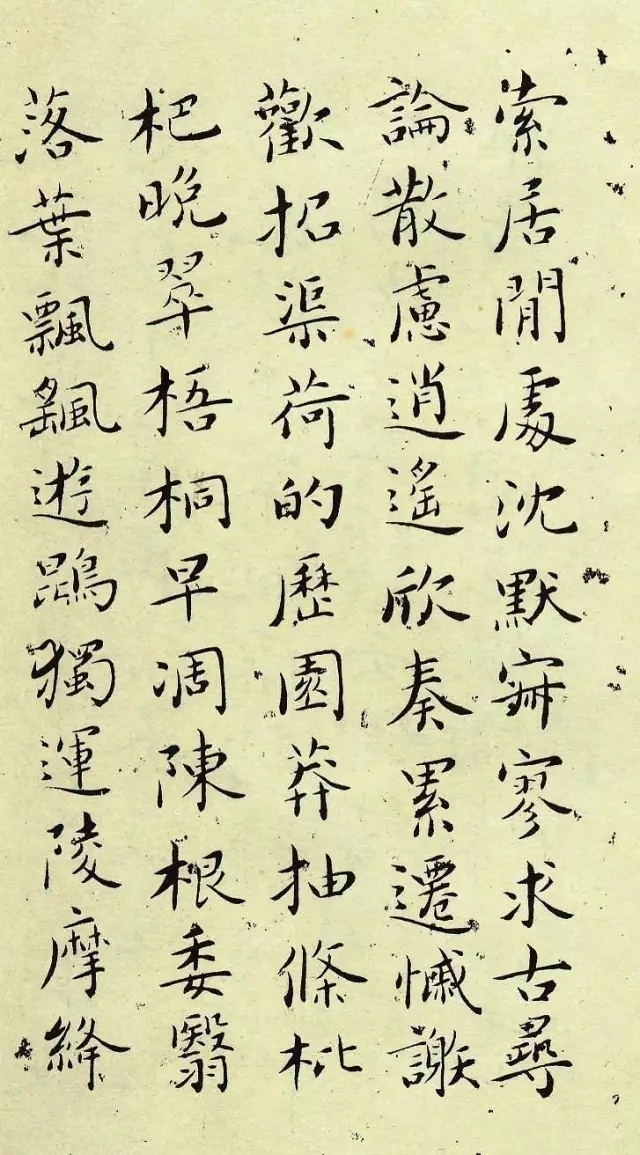 索居閒處沈默寂寥求古尋
論散慮逍遙欣奏累遣慼謝
歡招渠荷的歷園莽抽條枇
杷晚翠梧桐早凋陳根委翳
落葉飄飖遊鵾獨運陵摩絳